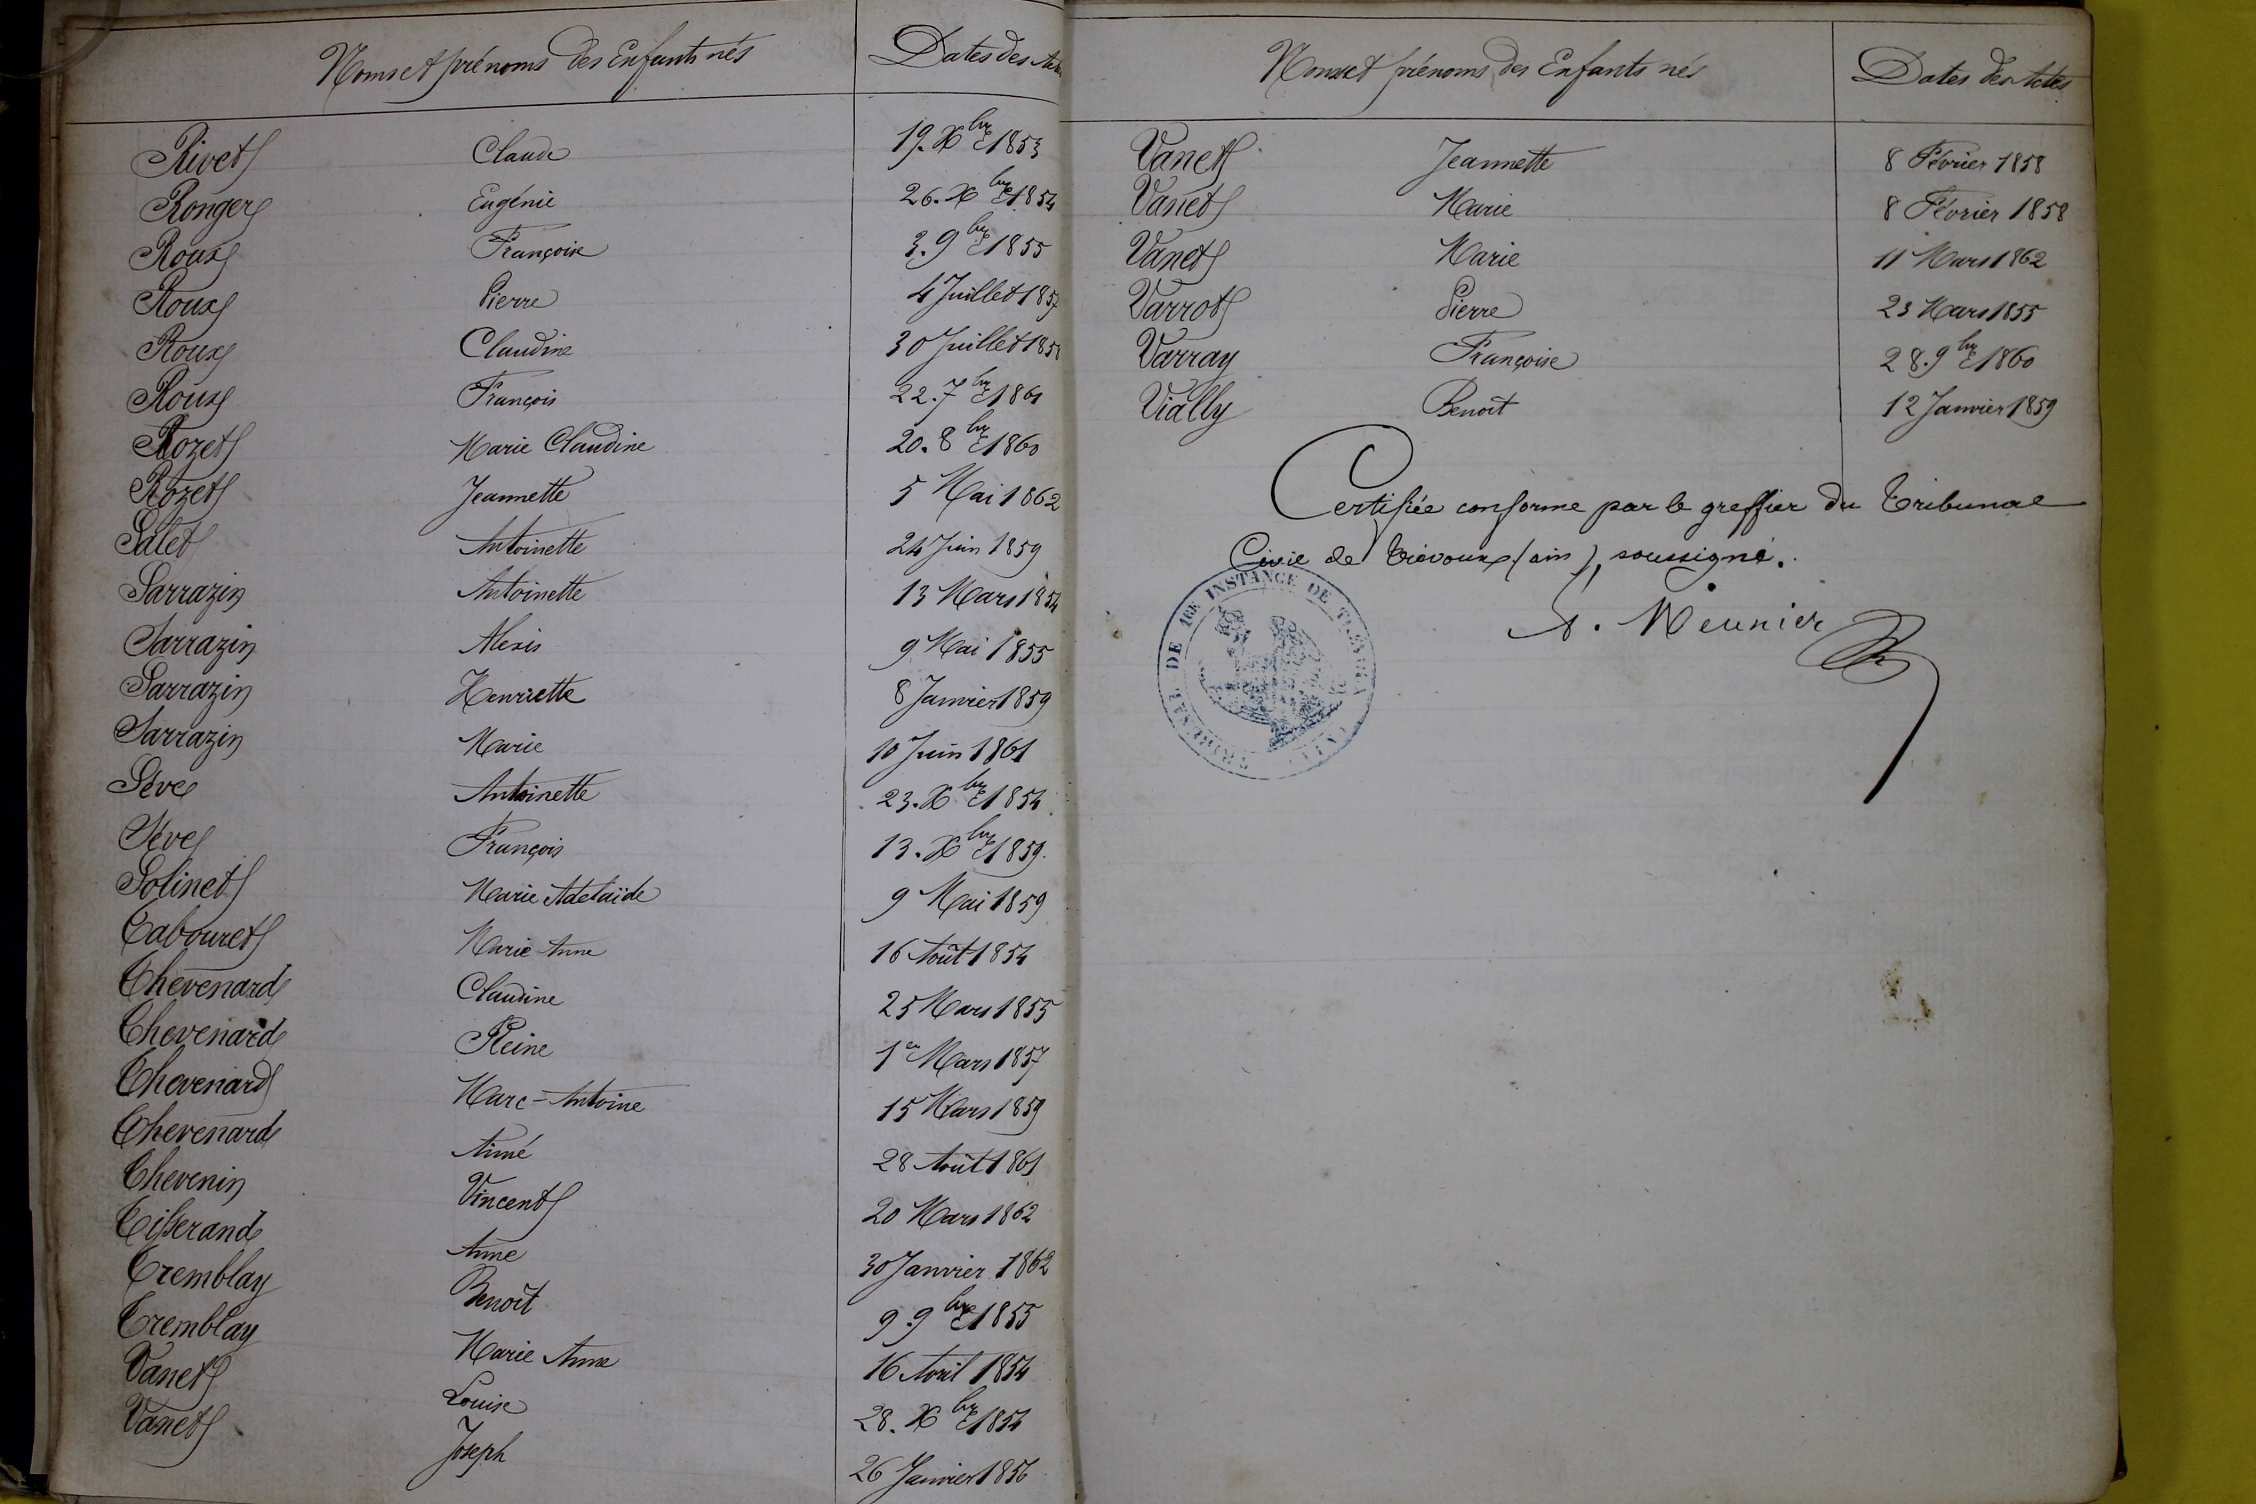 Noms et prénoms des Enfants nés Dates des Actes
Rivet Claude 19. Xbre 1853
Ronger Eugénie 26. Xbre 1854
Roux Françoise 3. 9bre 1855
Roux Pierre 4 Juillet 1857
Roux Claudine 30 Juillet 1858
Roux François 22. 7bre 1861
Rozet Marie Claudine 20. 8bre 1860
Rozet Jeannette 5 Mai 1862
Salet Antoinette 24 Juin 1859
Sarrazin Antoinette 13 Mars 1854
Sarrazin Alexis 9 Mai 1855
Sarrazin Henriette 8 Janvier 1859
Sarrazin Marie 10 Juin 1861
Sève Antoinette 23. Xbre 1854
Sève François 13. Xbre 1859
Solinet Marie Adelaïde 9 Mai 1859
Tabouret Marie Anne 16 Août 1854
Thevenard Claudine 25 Mars 1855
Thevenard Reine 1er Mars 1857
Thevenard Marc-Antoine 15 Mars 1859
Thevenard Aimé 28 Août 1861
Thevenin Vincent 20 Mars 1862
Tisserand Anne 30 Janvier 1862
Tremblay Benoit 9. 9bre 1855
Tremblay Marie Anne 16 Avril 1854
Vanet Louise 28. Xbre 1854
Vanet Joseph 26 Janvier 1856
Noms et prénoms des Enfants nés Dates des Actes
Vanet Jeannette 8 Février 1858
Vanet Marie 8 Février 1858
Vanet Marie 11 Mars 1862
Varrot Pierre 23 Mars 1855
Varray Françoise 28. 9bre 1860
Vially Benoit 12 Janvier 1859
Certifiée conforme par le greffier du Tribunal
Civil de Trévoux (ain), soussigné.
A. Meunier
TRIBUNAL DE 1ERE INSTANCE DE